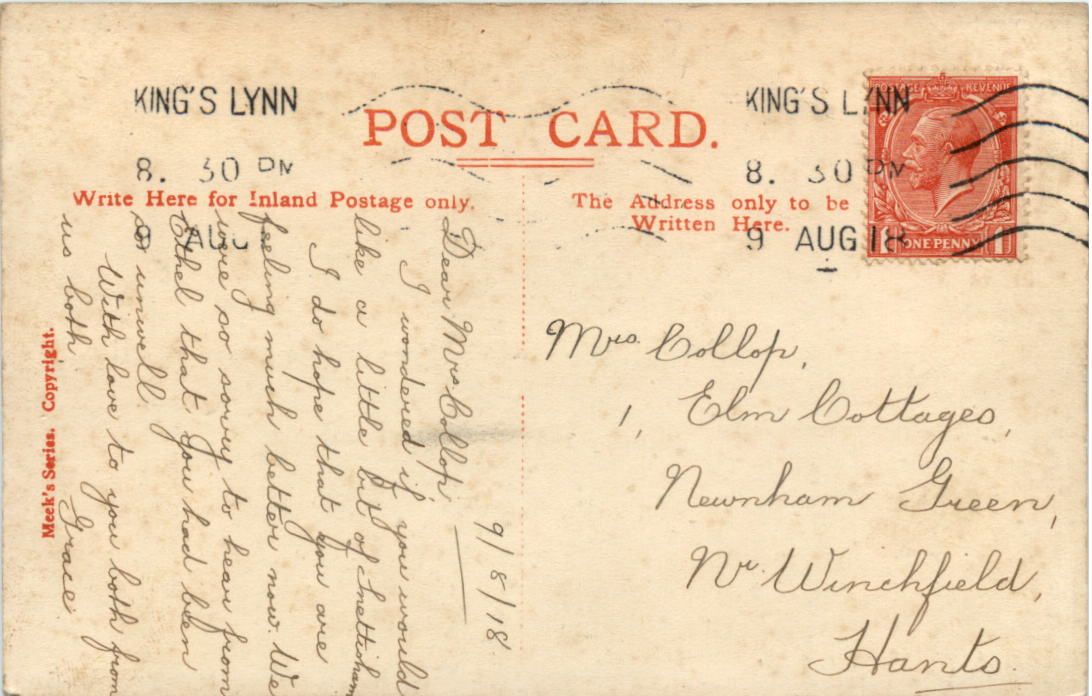 KING'S LYNN
8. 30 PM
9 AUG
KING'S LYNN
8. 30 PM
9 AUG 18
POST CARD.
Write Here for Inland Postage only.
The Address only to be
Written Here.
POSTAGE REVENUE
1 ONE PENNY 1
9/8/18
Dear Mrs. Collop
I wondered if you would
like a little bit of Snettisham
I do hope that you are
feeling much better now. We
were so sorry to hear from
Ethel that you had been
so unwell
With love to you both from
us both
Grace
Mrs. Collop,
1, Elm Cottages,
Newnham Green,
Nr. Winchfield,
Hants.
Meek's Series. Copyright.